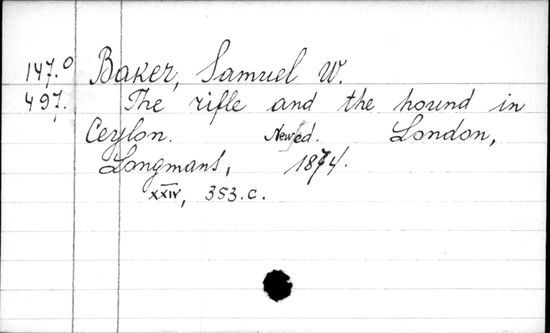 147.0 Baker, Samuel W.
497. The rifle and the hound in
Ceylon. New ed. London,
Longmans, 1874.
XXIV, 353.c.